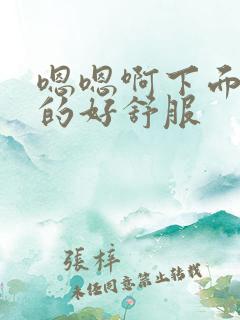 嗯嗯啊下面
的好舒服
張梓
未经同意禁止转载